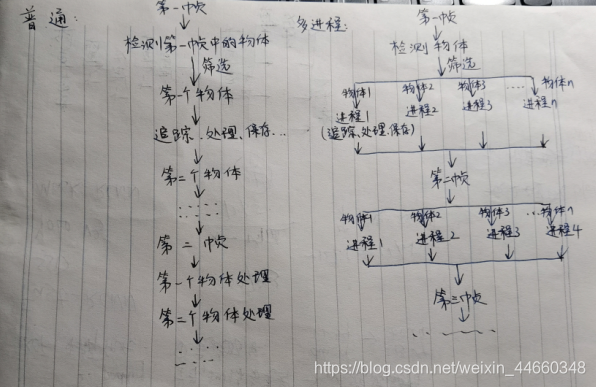 普通:
第一帧
检测第一帧中的物体
筛选
第一个物体
追踪、处理、保存...
第二个物体
......
第二帧
第一个物体处理
第二个物体处理
......
多进程:
第一帧
检测物体
筛选
物体1 物体2 物体3 ...... 物体n
进程1 进程2 进程3 进程n
(追踪、处理、保存)
第二帧
物体1 物体2 物体3 ... 物体n
进程1 进程2 进程3 进程4
第三帧
......
https://blog.csdn.net/weixin_44660348